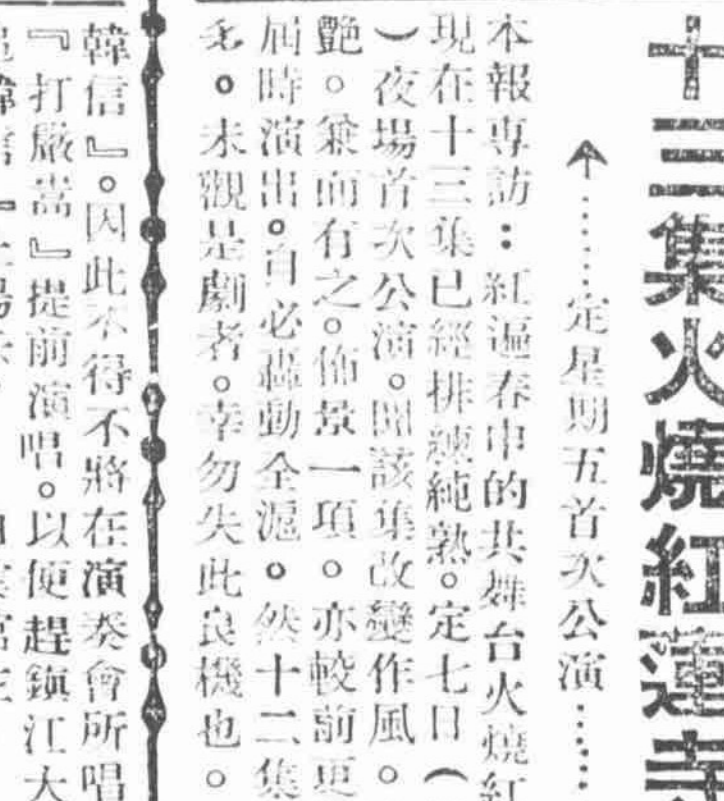 十三集火燒紅蓮寺
↑……定星期五首次公演……
本報専訪：紅遍春申的共舞台火燒紅
現在十三集已經排練純熟。定七日（
）夜場首次公演。聞該集改變作風。
艷。兼而有之。佈景一項。亦較前更
屆時演出。自必轟動全滬。然十二集
。未觀是劇者。幸勿失此良機也。
韓信』。因此不得不將在演奏會所唱
『打嚴嵩』提前演唱。以便趕鎮江大